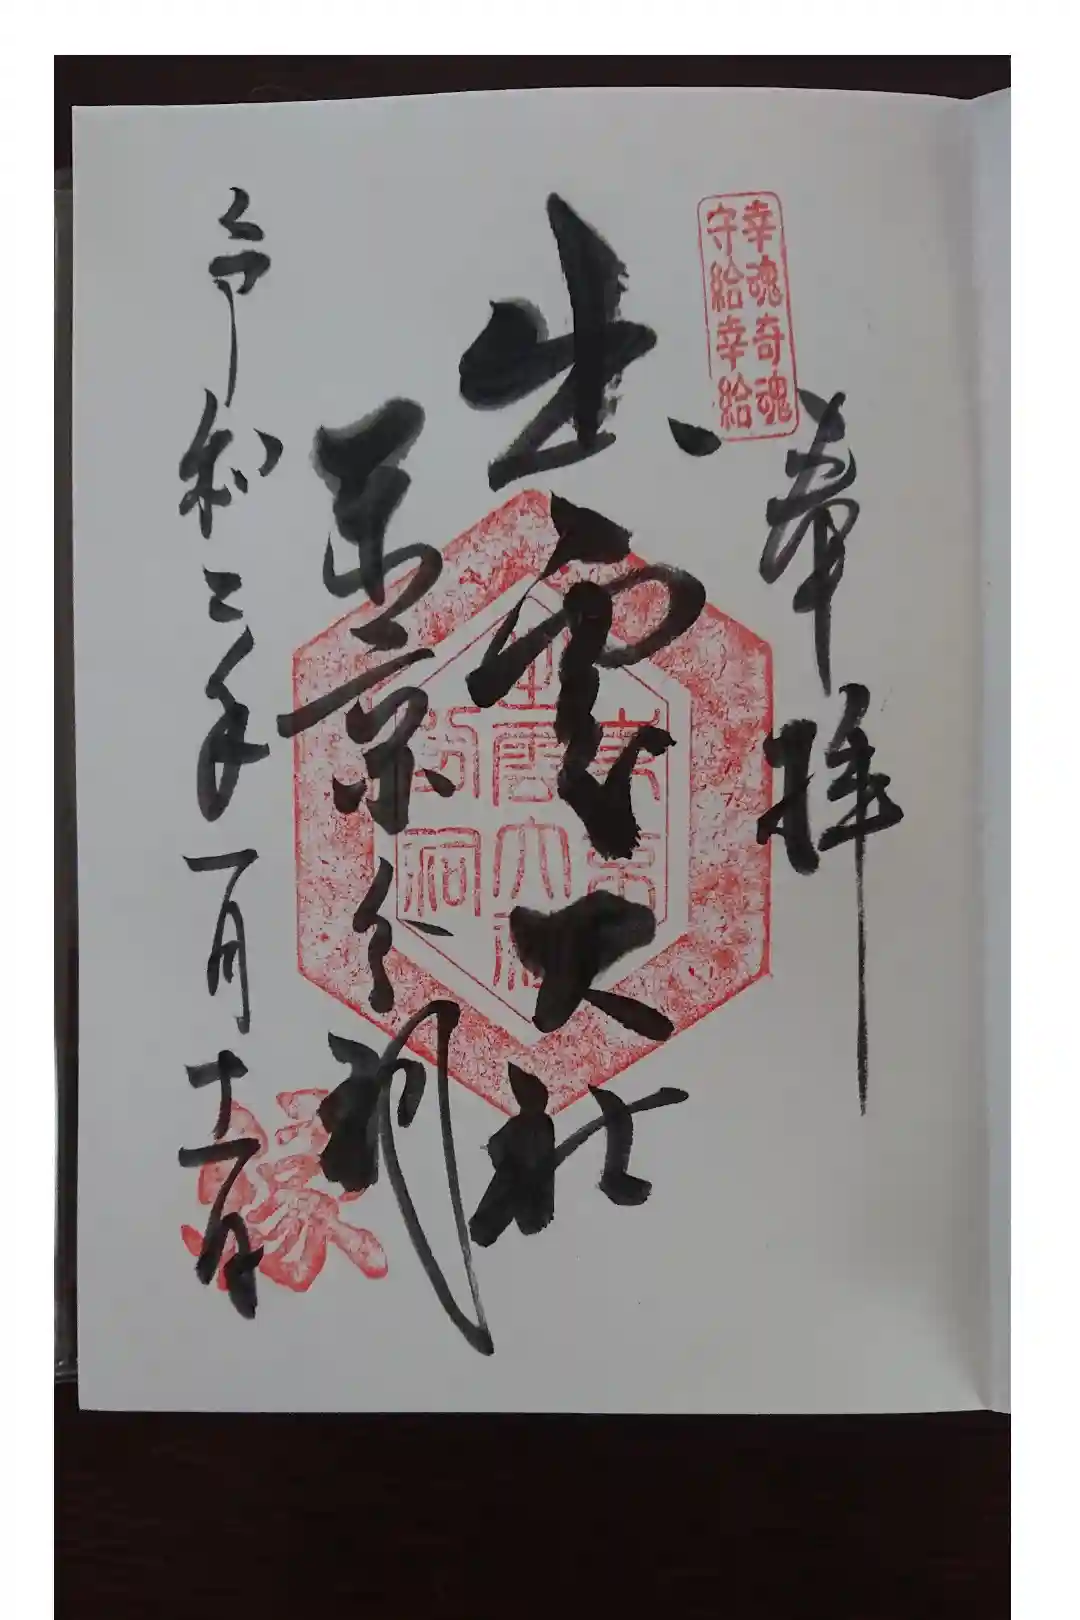 幸魂奇魂
守給幸給
奉拝
出雲大社
東京分祠
令和二年一月十一日
東京
出雲大社
分祠
縁